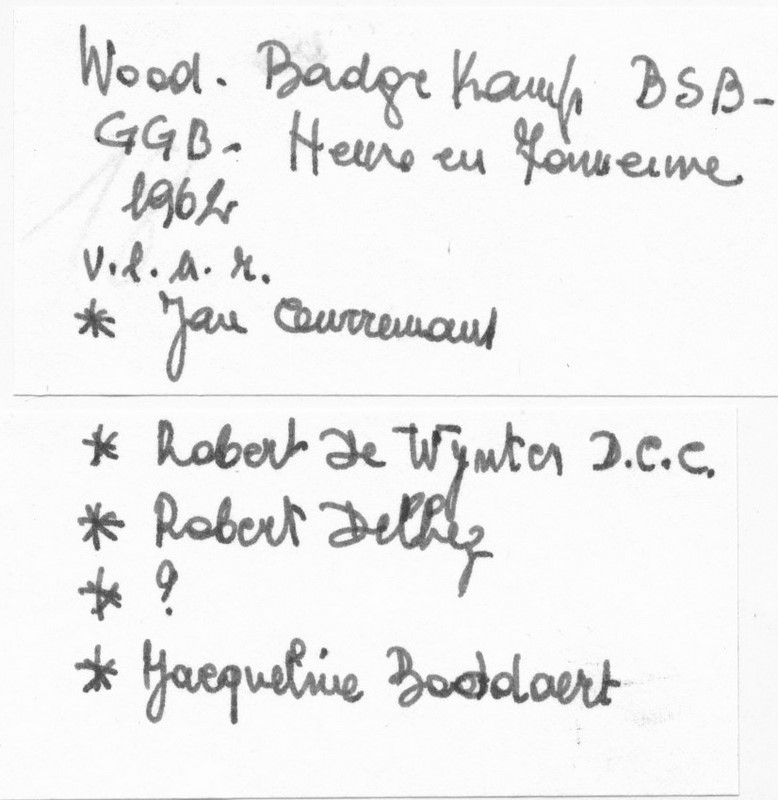 Wood. Badge Kamp BSB-
GGB. Heure en Famenne
1962
v.l.n.r.
* Jan
* Robert De Wynter D.C.C.
* Robert Delhez
* ?
* Jacqueline Boddaert